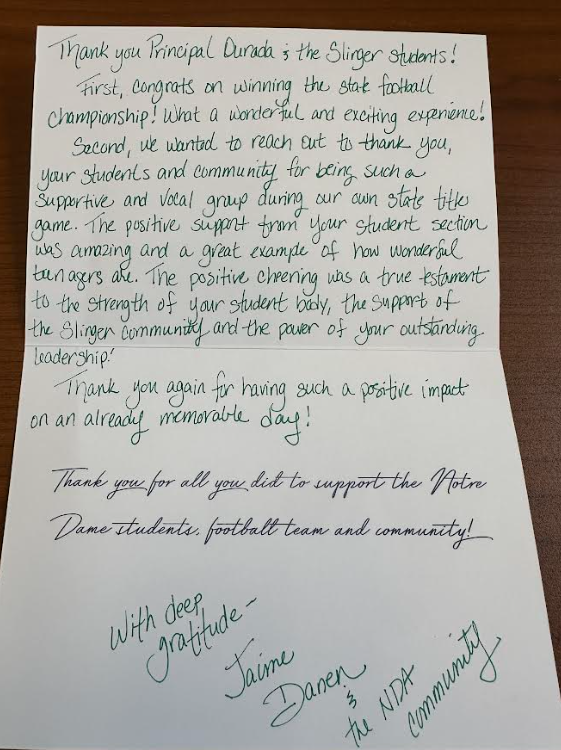 Thank you Principal Durada & the Slinger students!
First, congrats on winning the state football
championship! What a wonderful and exciting experience!
Second, we wanted to reach out to thank you,
your students and community for being such a
supportive and vocal group during our own state title
game. The positive support from your student section
was amazing and a great example of how wonderful
teenagers are. The positive cheering was a true testament
to the strength of your student body, the support of
the Slinger community and the power of your outstanding
leadership!
Thank you again for having such a positive impact
on an already memorable day!
Thank you for all you did to support the Notre
Dame students, football team and community!
With deep
gratitude -
Jaime
Danen
&
the NDA
community